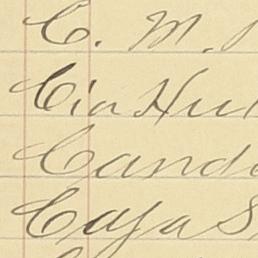 C. M.
Cia Hu
Cand
Caja S